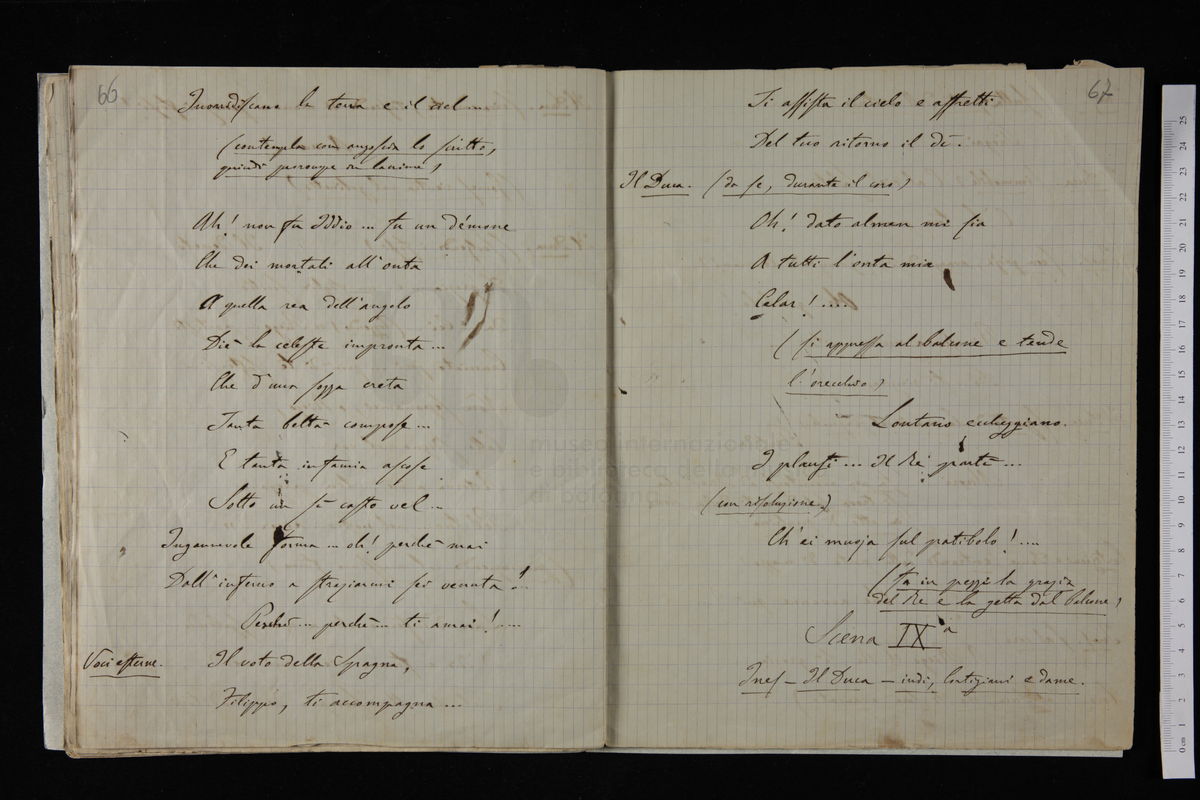 66
Inorridiscano la terra e il ciel...
(contempla con angoscia lo scritto,
quindi prorompe in lacrime)
Ah! non fu Iddio... fu un démone
Che dei mortali all'onta
A quella rea dell'angelo
Diè la celeste impronta...
Che d'una sozza creta
Tanta beltà compose...
E tanta infamia ascose
Sotto un sì casto vel...
Ingannevole forma... oh! perchè mai
Dall'inferno a straziarmi sei venuta!..
Perchè... perchè... ti amai!....
Voci esterne. Il voto della Spagna,
Filippo, ti accompagna...
67
Ti assista il cielo e affretti
Del tuo ritorno il dì.
Il Duca. (da se, durante il coro)
Oh! dato almen mi sia
A tutti l'onta mia
Celar!....
(si appressa al balcone e tende
l'orecchio)
Lontano echeggiano
I plausi... Il Rè parte...
(con risoluzione)
Ch'ei muoja sul patibolo!....
(fa in pezzi la grazia
del Re e la getta dal balcone)
Scena IXa
Ines - Il Duca - indi, Cortigiani e dame.
museo internazionale e
biblioteca della
di bologna
0 cm 1 2 3 4 5 6 7 8 9 10 11 12 13 14 15 16 17 18 19 20 21 22 23 24 25